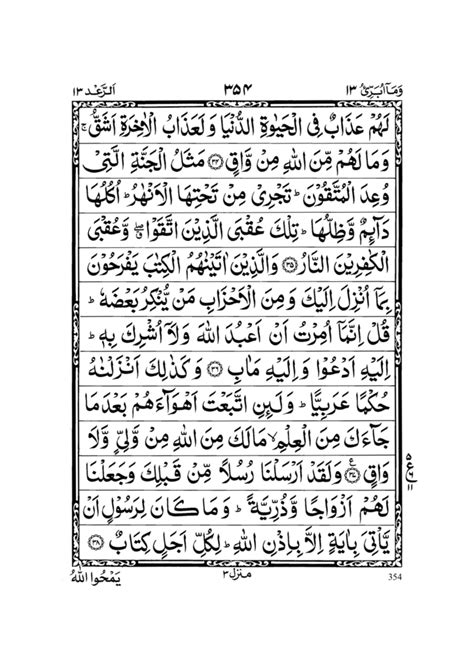 وَمَآ اُبَرِّئُ ١٣ ٣٥٤ اَلرَّعْد ١٣
لَهُمْ عَذَابٌ فِی الْحَیٰوةِ الدُّنْیَا وَلَعَذَابُ الْاٰخِرَةِ اَشَقُّ ۚ
وَمَا لَهُمْ مِّنَ اللّٰهِ مِنْ وَّاقٍ ﴿٣٤﴾ مَثَلُ الْجَنَّةِ الَّتِیْ
وُعِدَ الْمُتَّقُوْنَ ؕ تَجْرِیْ مِنْ تَحْتِهَا الْاَنْهٰرُ ؕ اُكُلُهَا
دَآىِٕمٌ وَّظِلُّهَا ؕ تِلْكَ عُقْبَی الَّذِیْنَ اتَّقَوْا ۖۗ وَّعُقْبَی
الْكٰفِرِیْنَ النَّارُ ﴿٣٥﴾ وَالَّذِیْنَ اٰتَیْنٰهُمُ الْكِتٰبَ یَفْرَحُوْنَ
بِمَاۤ اُنْزِلَ اِلَیْكَ وَمِنَ الْاَحْزَابِ مَنْ یُّنْكِرُ بَعْضَهٗ ؕ
قُلْ اِنَّمَاۤ اُمِرْتُ اَنْ اَعْبُدَ اللّٰهَ وَلَاۤ اُشْرِكَ بِهٖ ؕ
اِلَیْهِ اَدْعُوْا وَاِلَیْهِ مَاٰبِ ﴿٣٦﴾ وَكَذٰلِكَ اَنْزَلْنٰهُ
حُكْمًا عَرَبِیًّا ؕ وَلَىِٕنِ اتَّبَعْتَ اَهْوَآءَهُمْ بَعْدَمَا
جَآءَكَ مِنَ الْعِلْمِ ۙ مَالَكَ مِنَ اللّٰهِ مِنْ وَّلِیٍّ وَّلَا
وَاقٍ ﴿٣٧﴾ وَلَقَدْ اَرْسَلْنَا رُسُلًا مِّنْ قَبْلِكَ وَجَعَلْنَا
لَهُمْ اَزْوَاجًا وَّذُرِّیَّةً ؕ وَمَا كَانَ لِرَسُوْلٍ اَنْ
یَّاْتِیَ بِاٰیَةٍ اِلَّا بِاِذْنِ اللّٰهِ ؕ لِكُلِّ اَجَلٍ كِتَابٌ ﴿٣٨﴾
٥ ع ١١
354 منزل ٣ یَمْحُوا اللّٰهُ